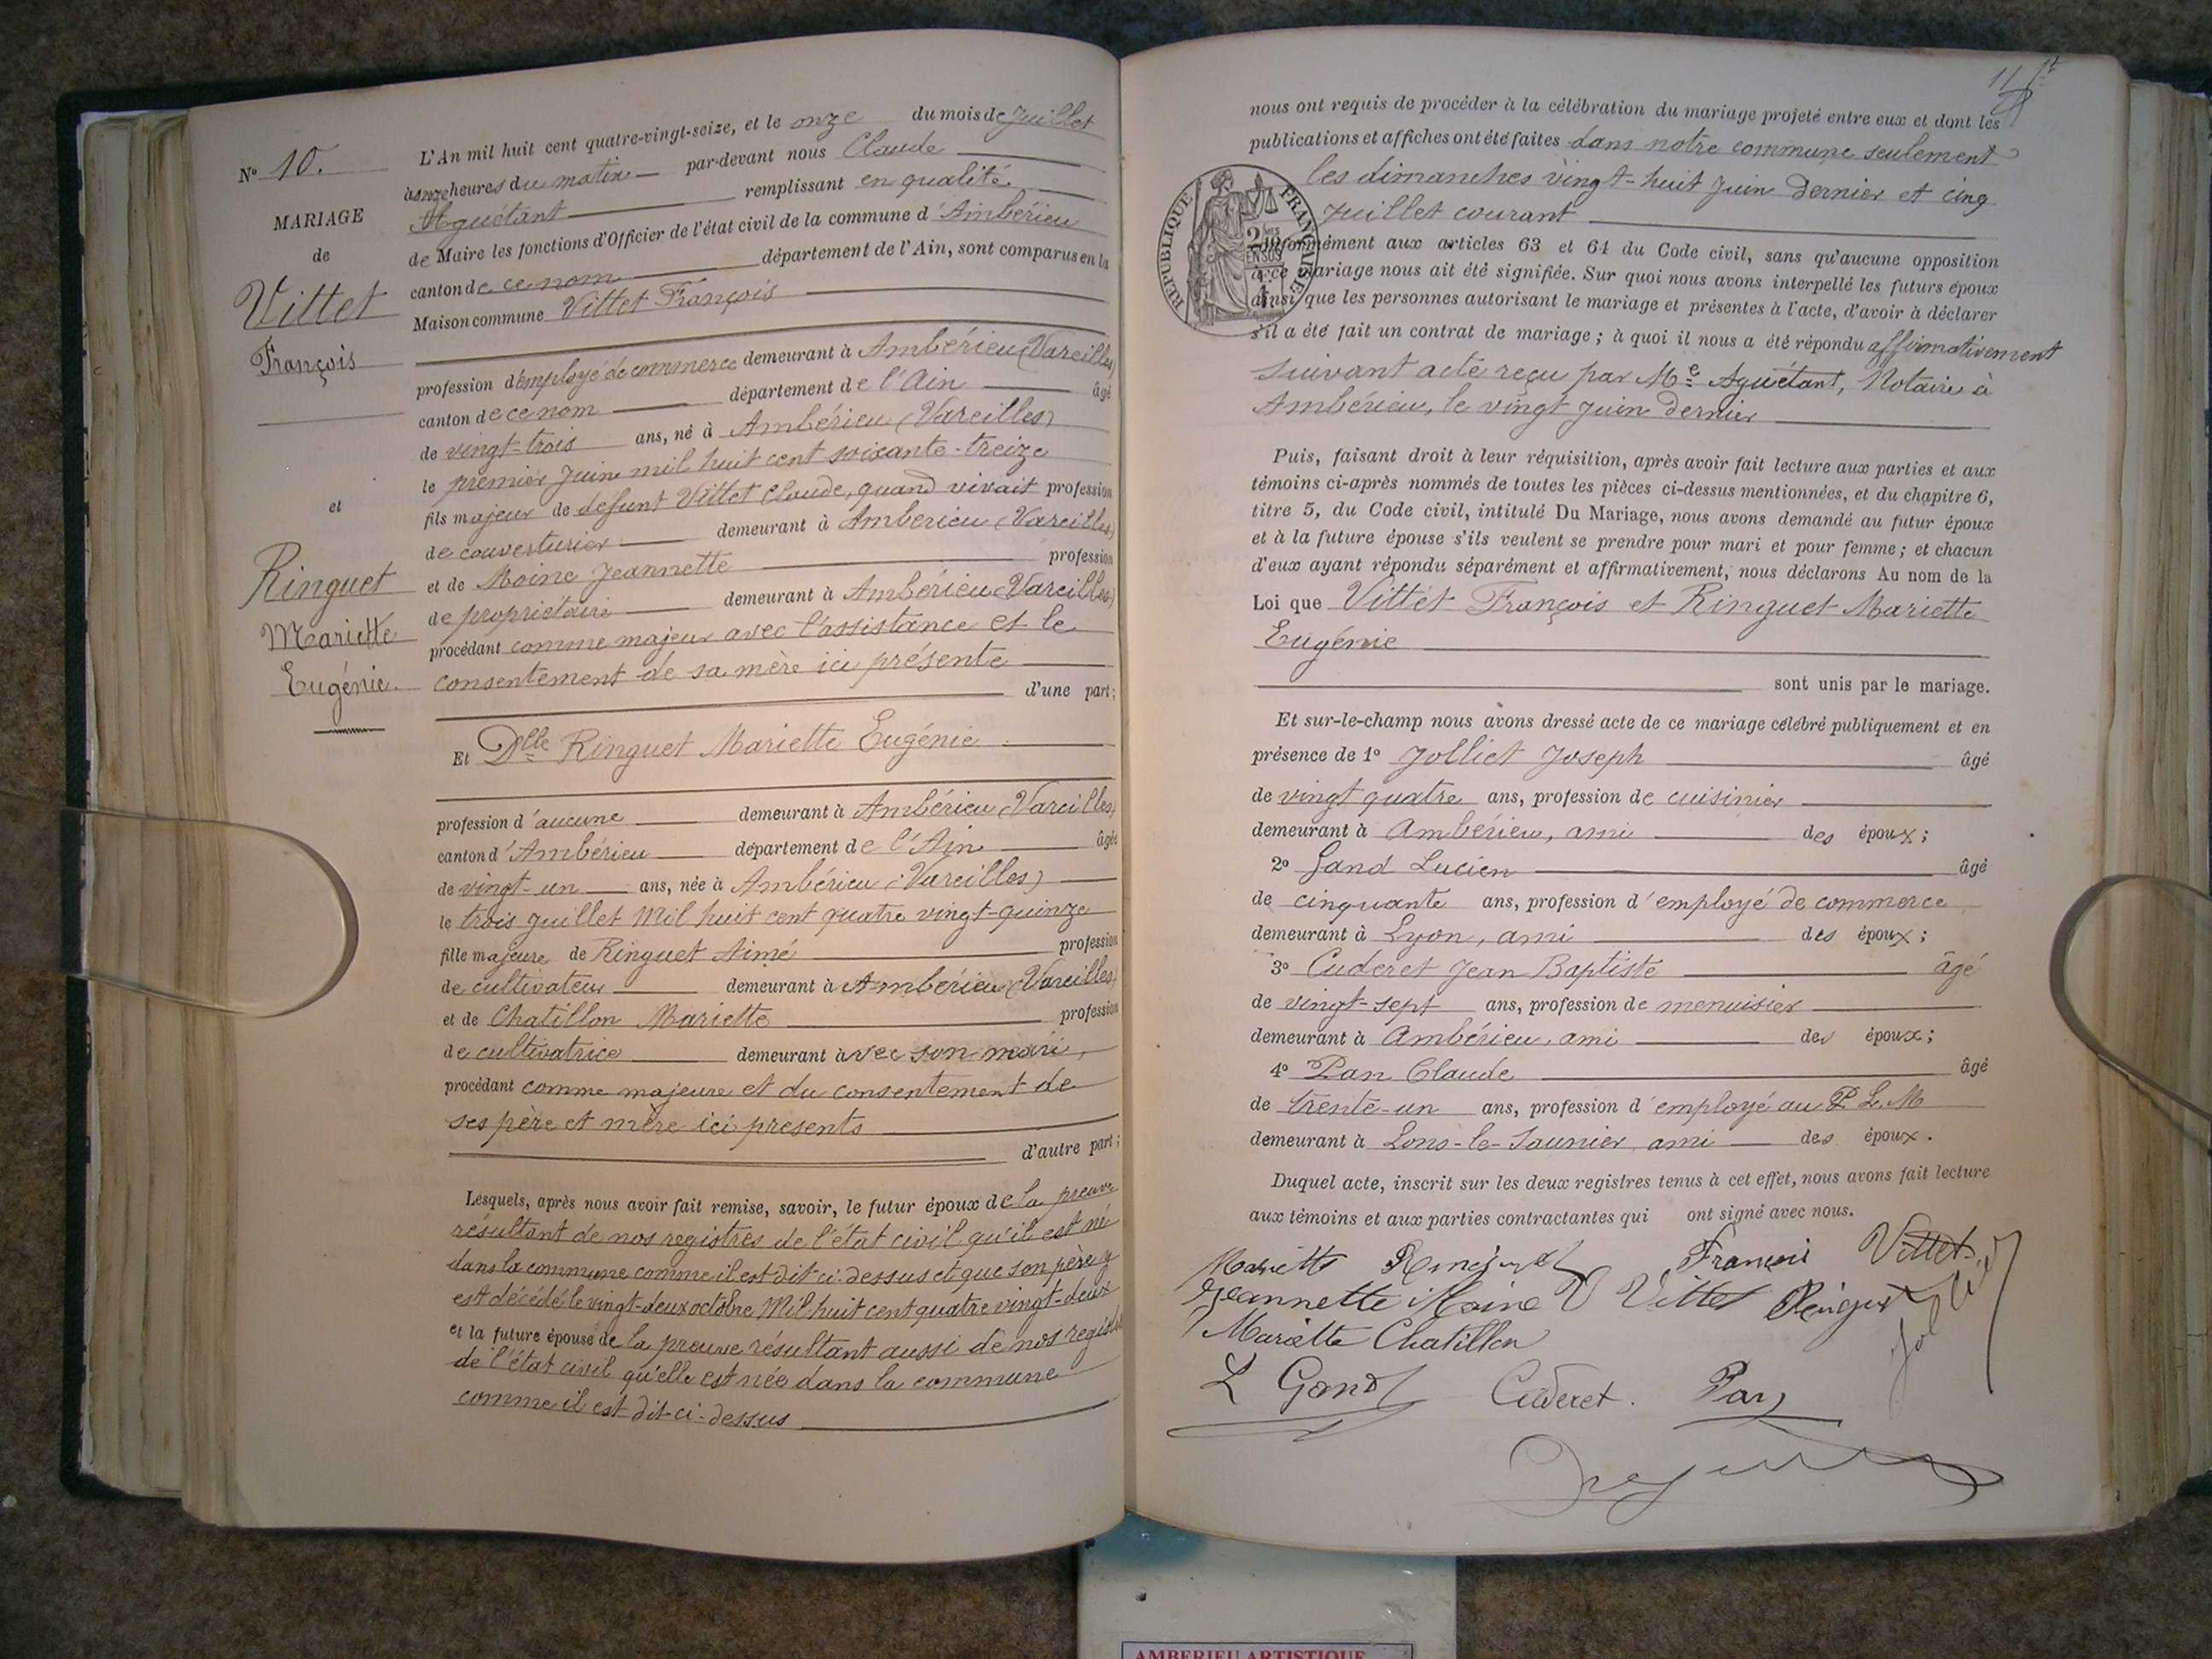 N° 10.
MARIAGE
de
Vittet
François
et
Ringuet
Mariette
Eugénie.
L'An mil huit cent quatre-vingt-seize, et le onze du mois de Juillet
à onze heures du matin par-devant nous Claude
Aguétant remplissant en qualité
de Maire les fonctions d'Officier de l'état civil de la commune d'Ambérieu
canton de ce nom département de l'Ain, sont comparus en la
Maison commune Vittet François
profession d'employé de commerce demeurant à Ambérieu (Vareilles)
canton de ce nom département de l'Ain âgé
de vingt-trois ans, né à Ambérieu (Vareilles)
le premier Juin mil huit cent soixante-treize
fils majeur de defunt Vittet Claude, quand vivait profession
de couverturier demeurant à Amberieu (Vareilles)
et de Moine Jeannette profession
de propriétaire demeurant à Ambérieu (Vareilles)
procédant comme majeur avec l'assistance et le
consentement de sa mère ici présente
d'une part;
Et Dlle Ringuet Mariette Eugénie
profession d'aucune demeurant à Ambérieu (Vareilles)
canton d'Ambérieu département de l'Ain âgée
de vingt-un ans, née à Ambérieu (Vareilles)
le trois juillet Mil huit cent quatre vingt-quinze
fille majeure de Ringuet Aimé profession
de cultivateur demeurant à Ambérieu (Vareilles)
et de Chatillon Mariette profession
de cultivatrice demeurant avec son mari,
procédant comme majeure et du consentement de
ses père et mère ici presents
d'autre part;
Lesquels, après nous avoir fait remise, savoir, le futur époux de la preuve
résultant de nos registres de l'état civil qu'il est né
dans la commune comme il est dit ci-dessus et que son père y
est décédé le vingt-deux octobre Mil huit cent quatre vingt-deux
et la future épouse de la preuve résultant aussi de nos registres
de l'état civil qu'elle est née dans la commune
comme il est dit ci-dessus
nous ont requis de procéder à la célébration du mariage projeté entre eux et dont les
publications et affiches ont été faites dans notre commune seulement
les dimanches vingt-huit Juin dernier et cinq
Juillet courant
RÉPUBLIQUE FRANÇAISE
conformément aux articles 63 et 64 du Code civil, sans qu'aucune opposition
à ce mariage nous ait été signifiée. Sur quoi nous avons interpellé les futurs époux
ainsi que les personnes autorisant le mariage et présentes à l'acte, d'avoir à déclarer
s'il a été fait un contrat de mariage; à quoi il nous a été répondu affirmativement
suivant acte reçu par Me Aguétant, Notaire à
Ambérieu, le vingt Juin dernier
Puis, faisant droit à leur réquisition, après avoir fait lecture aux parties et aux
témoins ci-après nommés de toutes les pièces ci-dessus mentionnées, et du chapitre 6,
titre 5, du Code civil, intitulé Du Mariage, nous avons demandé au futur époux
et à la future épouse s'ils veulent se prendre pour mari et pour femme; et chacun
d'eux ayant répondu séparément et affirmativement, nous déclarons Au nom de la
Loi que Vittet François et Ringuet Mariette
Eugénie
sont unis par le mariage.
Et sur-le-champ nous avons dressé acte de ce mariage célébré publiquement et en
présence de 1° Jolliet Joseph âgé
de vingt quatre ans, profession de cuisinier
demeurant à Ambérieu, ami des époux;
2° Gand Lucien âgé
de cinquante ans, profession d'employé de commerce
demeurant à Lyon, ami des époux;
3° Cuderet Jean Baptiste âgé
de vingt-sept ans, profession de menuisier
demeurant à Ambérieu, ami des époux;
4° Pan Claude âgé
de trente-un ans, profession d'employé au P. L. M
demeurant à Lons-le-Saunier, ami des époux.
Duquel acte, inscrit sur les deux registres tenus à cet effet, nous avons fait lecture
aux témoins et aux parties contractantes qui ont signé avec nous.
Mariette Ringuet François Vittet
Jeannette Moine V Vittet Ringuet Jolliet
Mariette Chatillon
L Gand Cuderet. Pan
AMBERIEU ARTISTIQUE